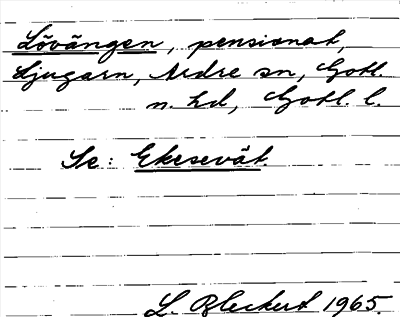 Lövängen, pensionat,
Ljugarn, Ardre sn, Gotl.
n. hd, Gotl. l.
Se: Ekesevät.
L. Bleckert 1965.